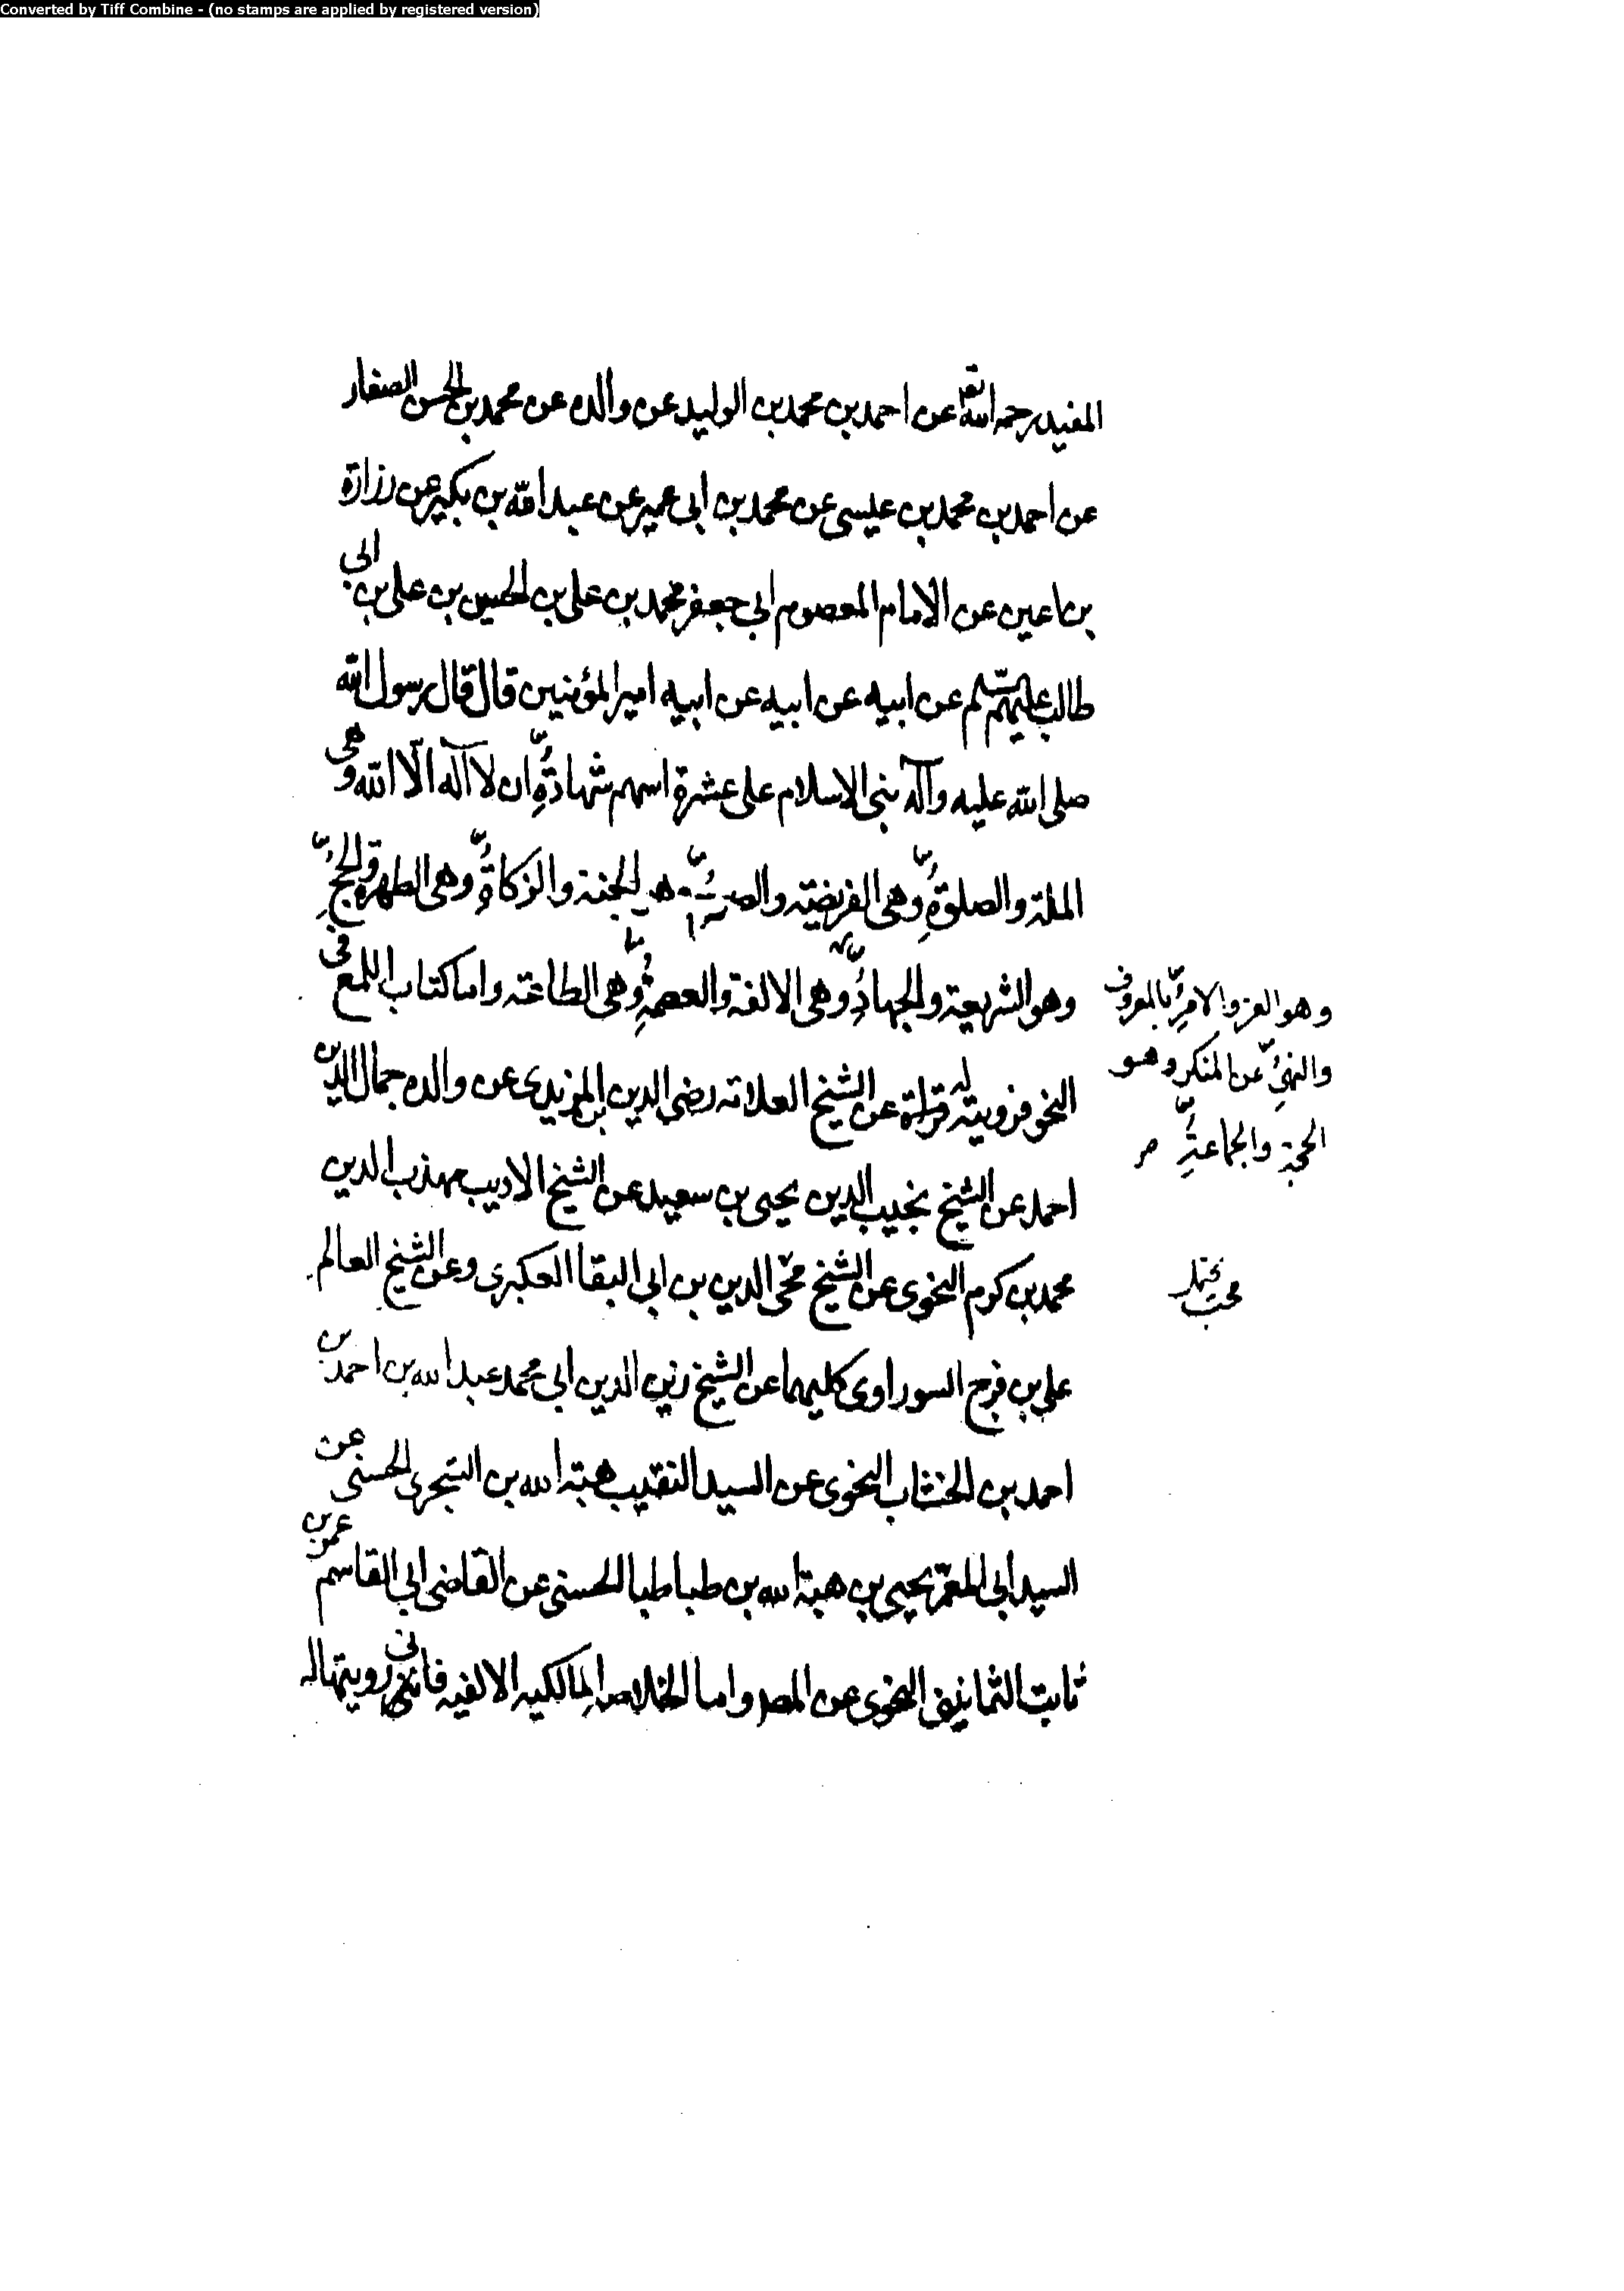 Converted by Tiff Combine - (no stamps are applied by registered version)
المفيد رحمه الله تع عن احمد بن محمد بن الوليد عن والده عن محمد بن الحسن الصفار
عن احمد بن محمد بن عيسى عن محمد بن ابى عمير عن عبد الله بن بكير عن زرارة
بن اعين عن الامام المعصوم ابي جعفر محمد بن على بن الحسين بن على بن ابى
طالب عليهم عن ابيه عن ابيه عن ابيه امير المؤمنين قال قال رسول الله
صلى الله عليه وآله بنى الاسلام على عشرة اسهم شهادة ان لا آله الّا الله وهى
الملة والصلوة وهى الفريضة والصوم هى الجنة والزكاة وهى الطهرة والحج
وهو الشريعة والجهاد وهى الالفة والعصمة وهى الطاعة واما كتاب اللمع فى
وهو العز والامر بالمعروف
والنهى عن المنكر وهو
الحجة والجماعة
النحو فرويته له قراءة عن الشيخ العلامة رضى الدين بن المزيدى عن والده جمال الدين
احمد عن الشيخ نجيب الدين يحيى بن سعيد عن الشيخ الاديب مهذب الدين
محمد بن كرم النحوى عن الشيخ محى الدين بن ابى البقا العكبرى وعن الشيخ العالم
محب
على بن فرج السوراوى كليهما عن الشيخ زين الدين ابى محمد عبد الله بن احمد بن
احمد بن الخشاب النحوى عن السيد النقيب هبة الله بن الشجرى الحسنى عن
السيد ابى المعمر يحيى بن هبة الله بن طباطبا الحسنى عن القاضى ابى القاسم عمر بن
ثابت الثمانينى النحوى عن المصر واما الخلاصه المالكيه الالفيه فاننى رويتها له